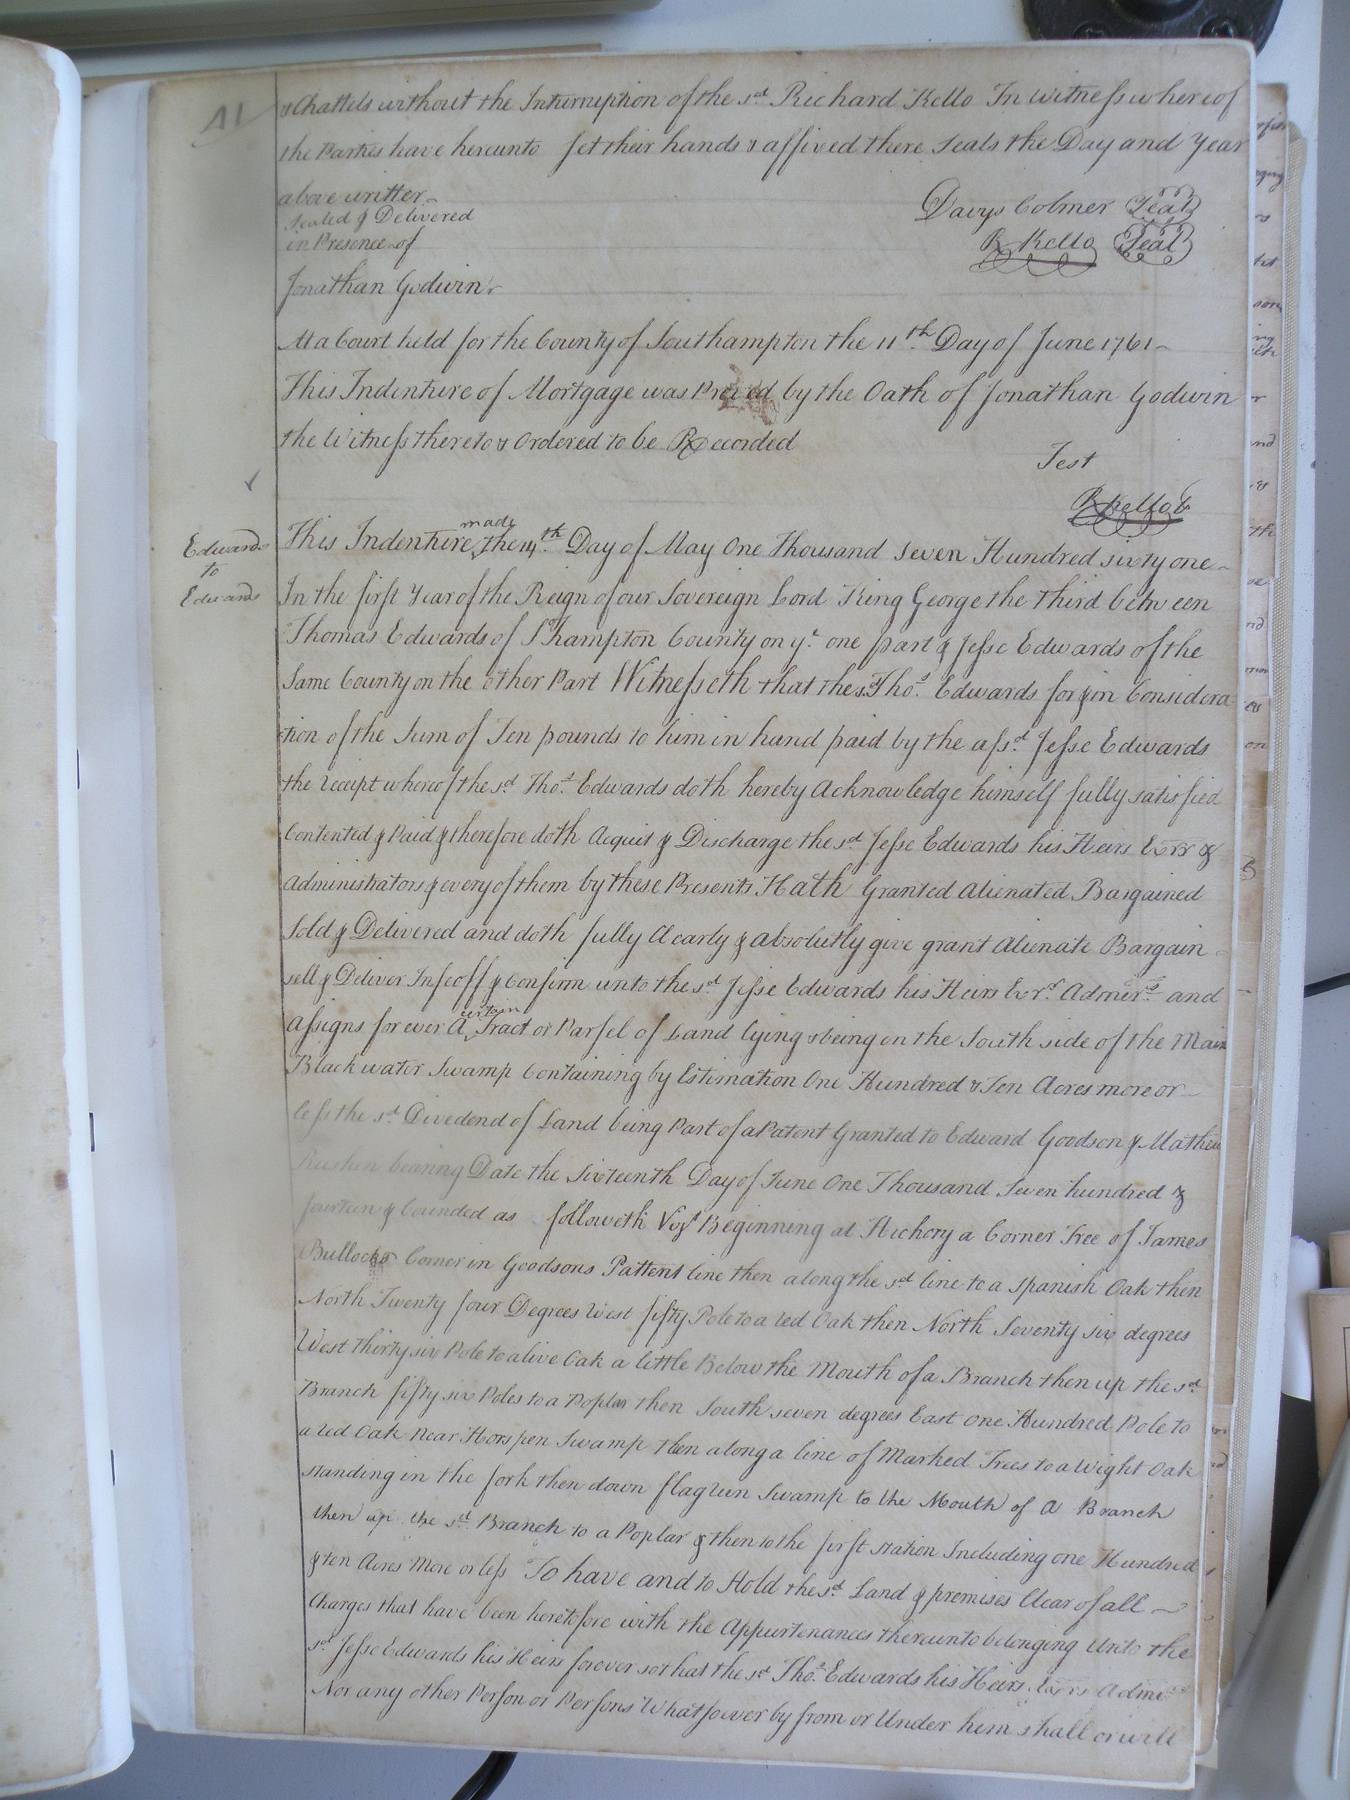 & Chattels without the Interruption of the sd Richard Kello In Witness whereof
the Parties have hereunto set their hands & affixed there Seals the Day and Year
above written
Sealed & Delivered
in Presence of
Davys Colmer Seal
R Kello Seal
Jonathan Godwin
At a Court held for the County of Southampton the 11th Day of June 1761
This Indenture of Mortgage was Proved by the Oath of Jonathan Godwin
the Witness thereto & Ordered to be Recorded
Test
R Kello
Edwards
to
Edwards
This Indenture made the 14th Day of May One Thousand Seven Hundred sixty one
In the first Year of the Reign of our Sovereign Lord King George the third between
Thomas Edwards of S'hampton County on ye one part & Jesse Edwards of the
Same County on the other Part Witnesseth that the sd Thos Edwards for & in Considera
tion of the Sum of Ten pounds to him in hand paid by the afsd Jesse Edwards
the receipt whereof the sd Thos Edwards doth hereby Acknowledge himself fully satisfied
Contented & Paid & therefore doth Acquit & Discharge the sd Jesse Edwards his Heirs Exrs &
Administrators & every of them by these Presents Hath Granted Alienated Bargained
Sold & Delivered and doth fully Clearly & absolutly give grant Alienate Bargain
sell & Deliver Infeoff & Confirm unto the sd Jesse Edwards his Heirs Exrs Admrs and
Assigns forever A certain Tract or Parsel of Land lying & being on the South side of the Main
Blackwater Swamp Containing by Estimation One Hundred & Ten Acres more or
less the sd Divedend of Land being Part of a Patent Granted to Edward Goodson & Mathew
Rushen bearing Date the Sixteenth Day of June One Thousand Seven hundred &
fourteen & bounded as followeth Vizt Beginning at Hickory a Corner Tree of James
Bullocks Corner in Goodsons Pattent line then along the sd line to a Spanish Oak then
North Twenty four Degrees West fifty Pole to a red Oak then North Seventy six degrees
West thirty six Pole to a live Oak a little Below the Mouth of a Branch then up the sd
Branch fifty six Poles to a Poplar then South seven degrees East one Hundred Pole to
a red Oak near Horspen Swamp then along a line of Marked Trees to a Wight Oak
standing in the fork then down flagrun Swamp to the Mouth of a Branch
then up the sd Branch to a Poplar & then to the first station Including one Hundred
& ten Acres More or less To have and to Hold the sd Land & premises Clear of all
Charges that have been heretofore with the Appurtenances thereunto belonging Unto the
sd Jesse Edwards his Heirs forever so that the sd Thos Edwards his Heirs Exrs Admrs
Nor any other Person or Persons Whatsoever by from or Under him shall or will